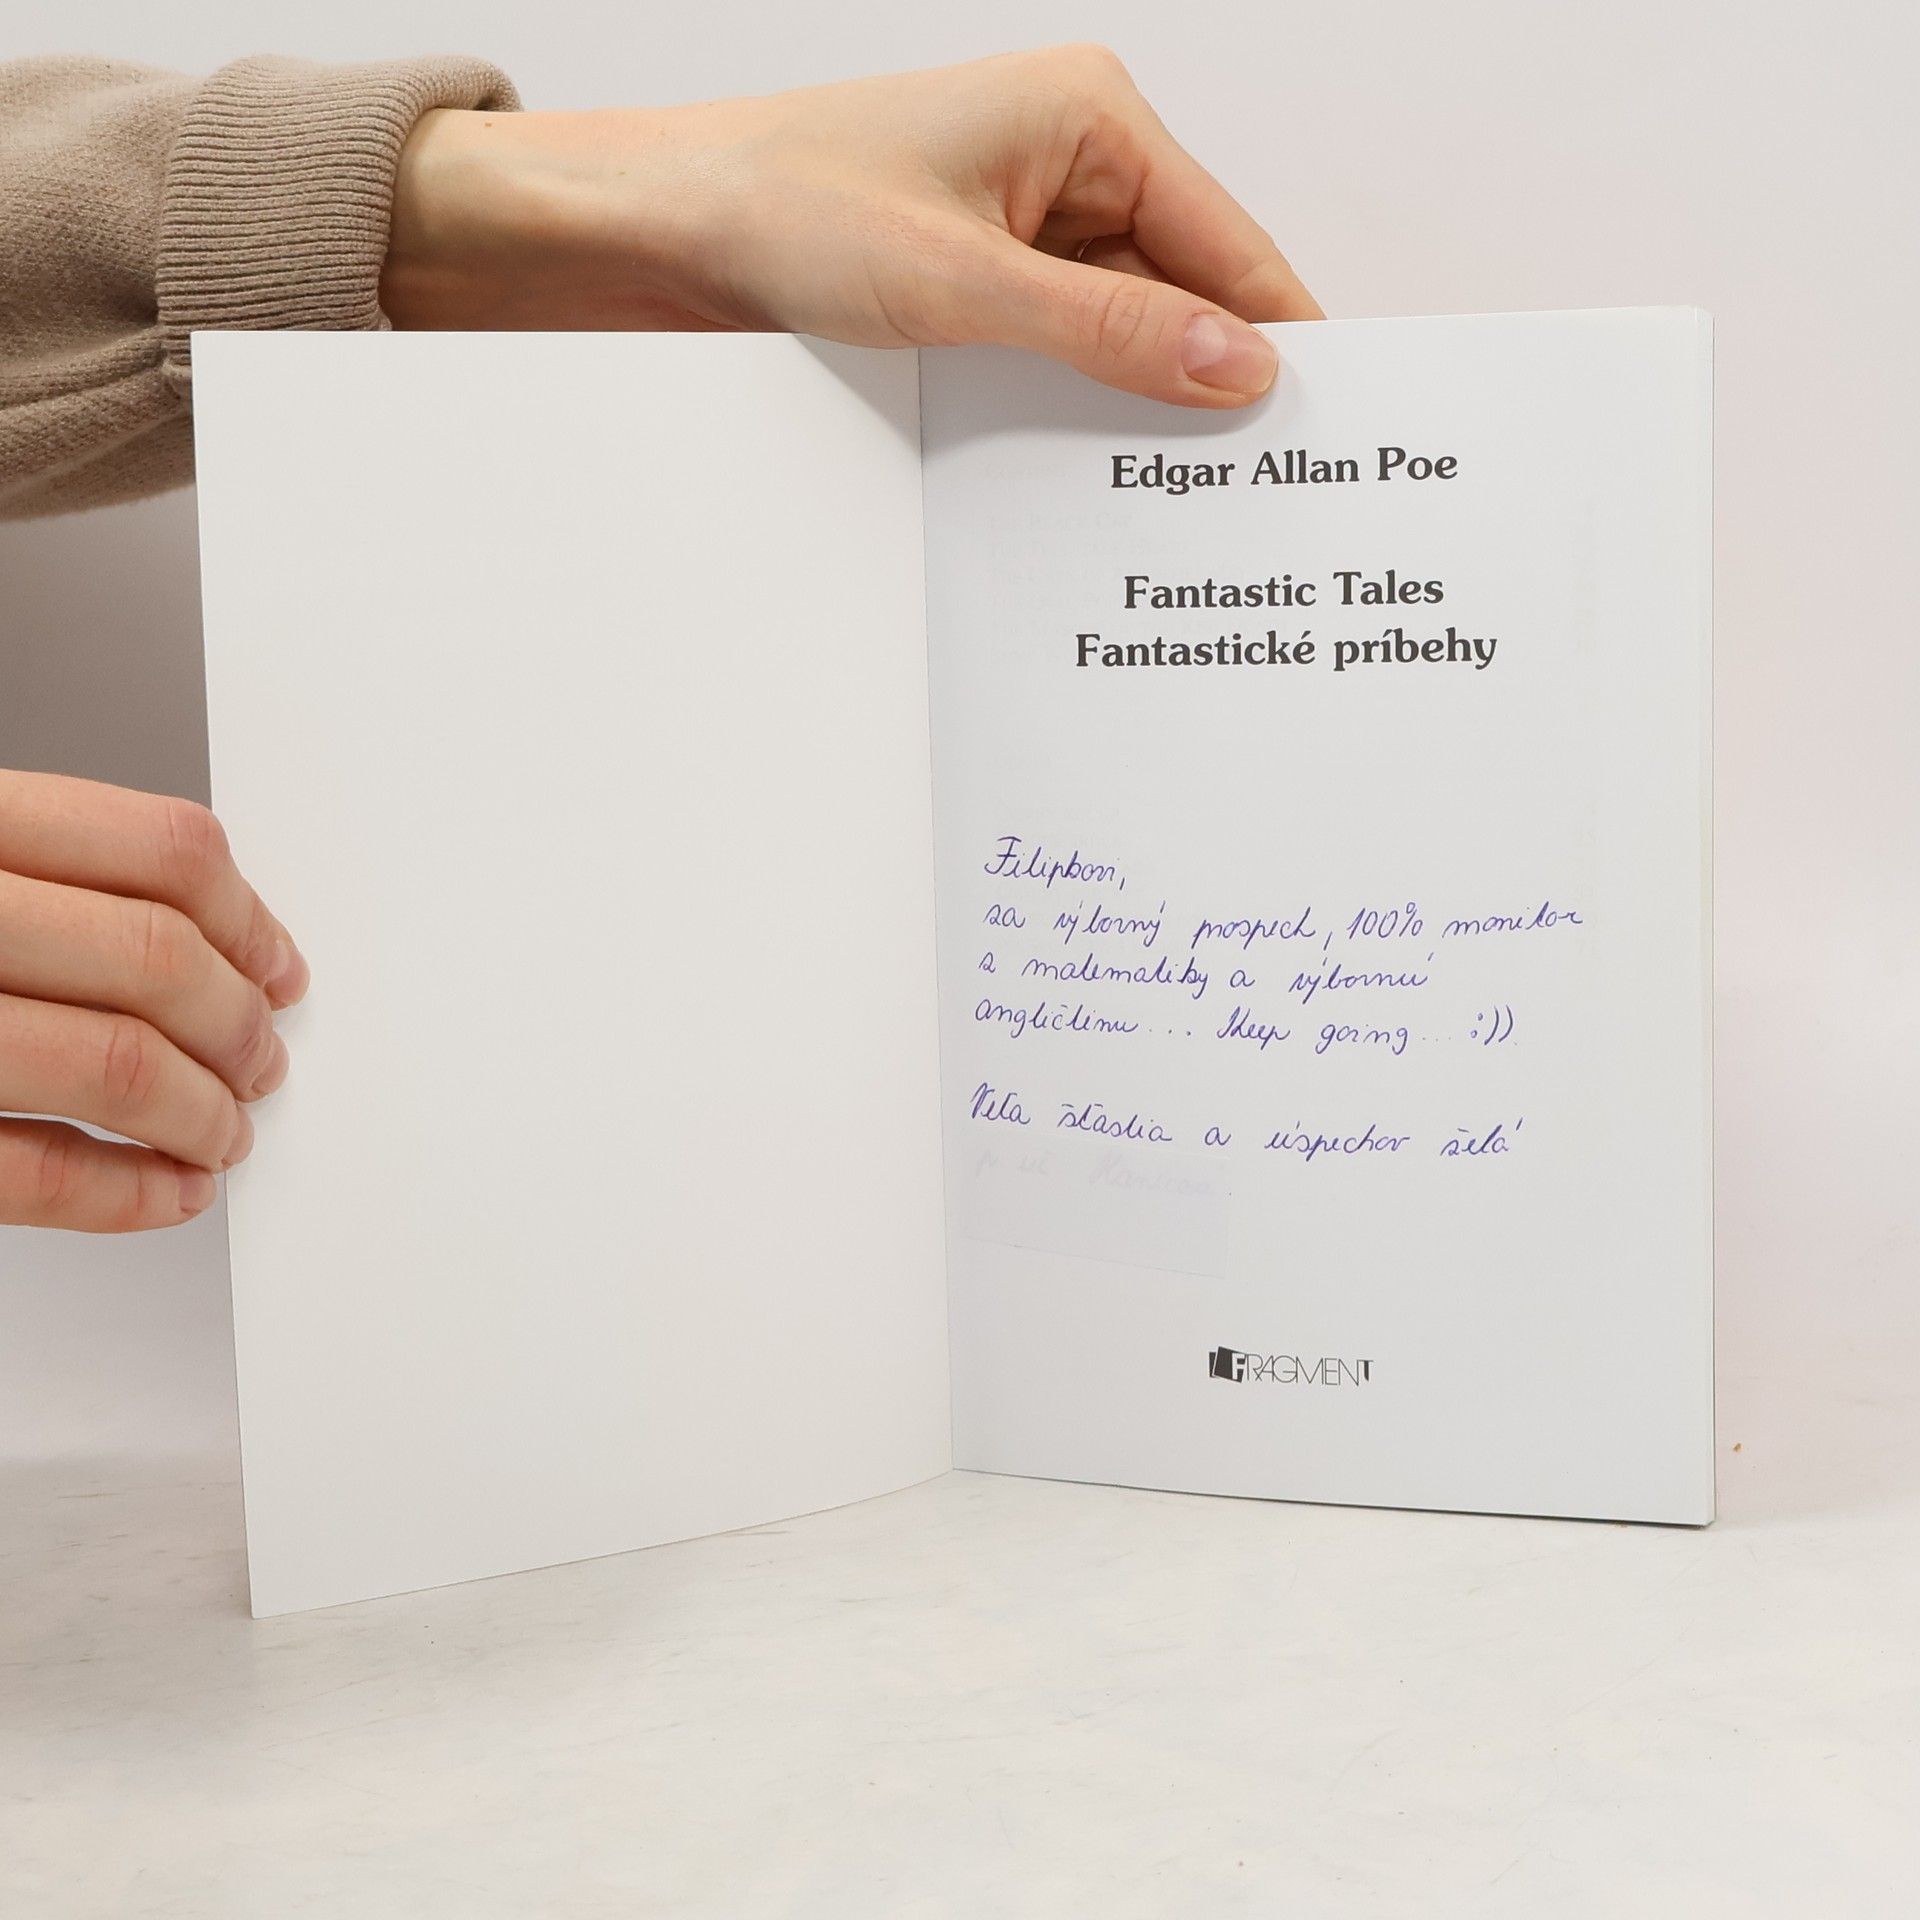 Edgar Allan Poe
Fantastic Tales
Fantastické príbehy
Filipkovi,
za výborný prospech, 100% monitor
z matematiky a výbornú
angličtinu... Keep going... :))
Veľa šťastia a úspechov želá
FRAGMENT